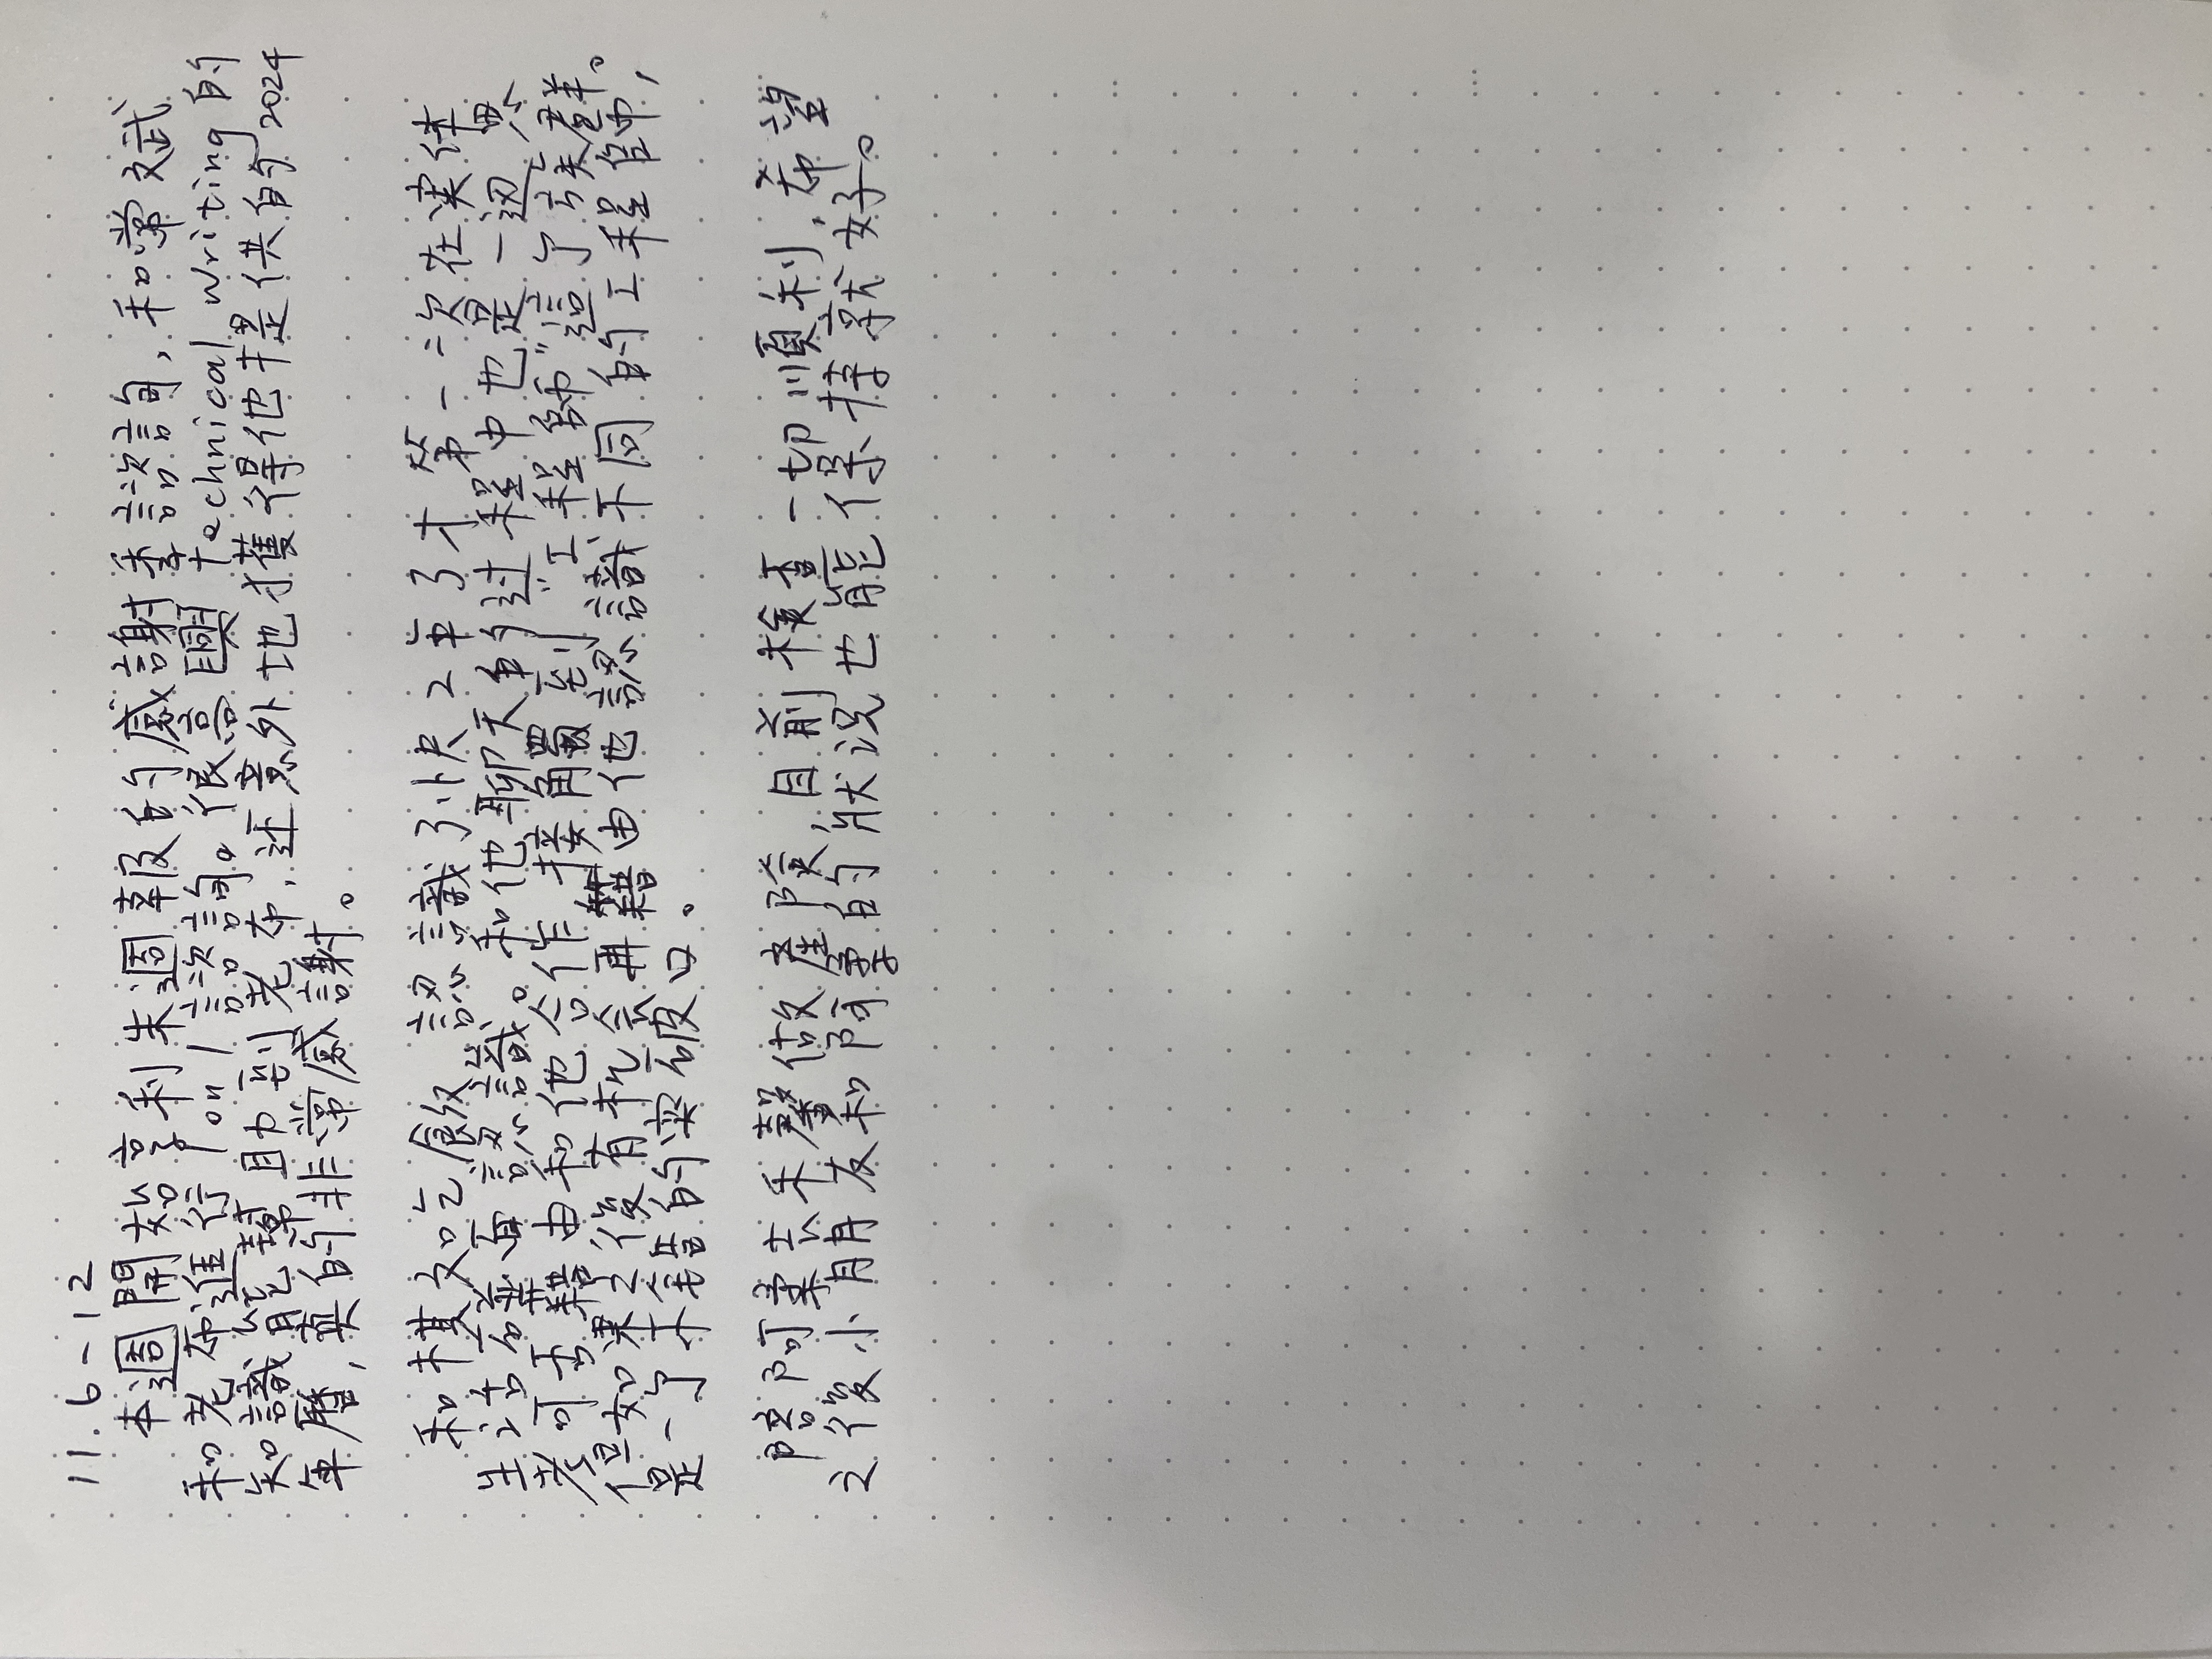 11.6-12
本週開始享利朱週報的感謝季諮詢,和常文武
和老布進行1 on 1諮詢。很高興 technical writing 的
知識能幫助到老布,还意外地獲得他提供的2024
年曆,真的非常感謝。
和棋文吃飯,認識了快2年了才第一次在实体
生活碰面認識。和他聊天的过程中也是一边思
考可否藉由和他合作,接觸到"工程師"這个族群。
但如果之後有机会再藉由他認識不同的工程師,
是一个不錯的突破口。
陪阿柔去禾馨做產險,目前檢查一切順利,希望
之後小朋友和阿柔的狀況也能保持就好。